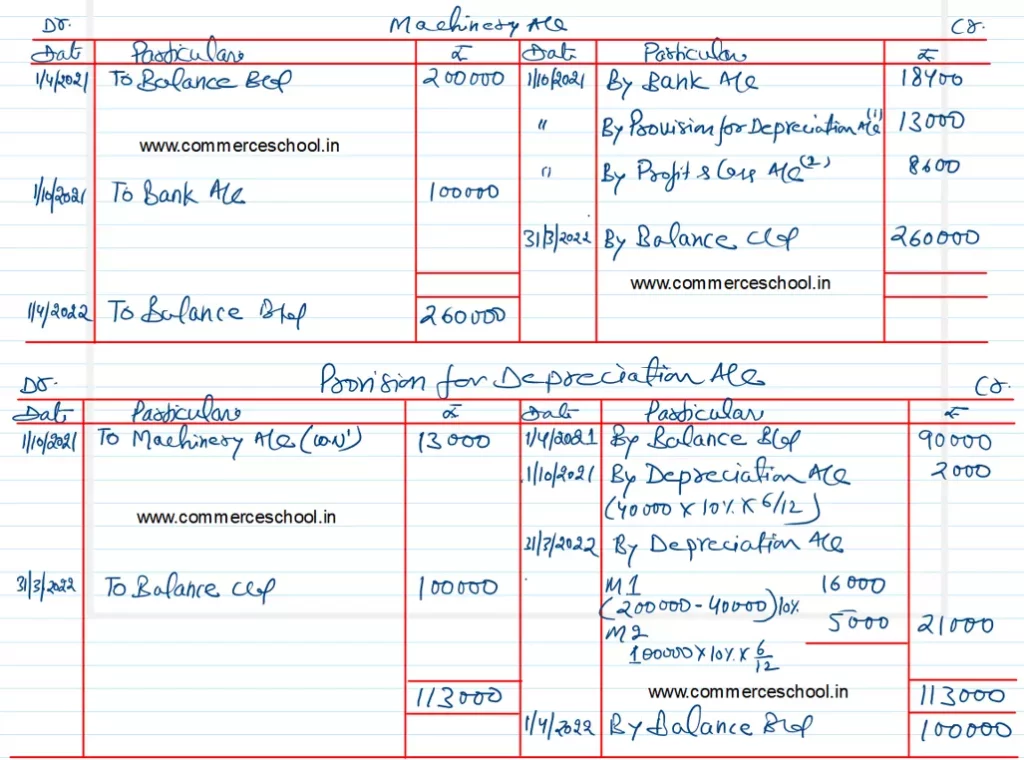 Dr. Machinery A/c Cr.
Date Particulars ₹ Date Particulars ₹
1/4/2021 To Balance B/d 200000 1/10/2021 By Bank A/c 18400
" By Provision for Depreciation A/c (1) 13000
www.commerceschool.in
" By Profit & Loss A/c (2) 8600
1/10/2021 To Bank A/c 100000
31/3/2022 By Balance C/d 260000
www.commerceschool.in
1/4/2022 To Balance B/d 260000
Dr. Provision for Depreciation A/c Cr.
Date Particulars ₹ Date Particulars ₹
1/10/2021 To Machinery A/c (WN1) 13000 1/4/2021 By Balance B/d 90000
1/10/2021 By Depreciation A/c 2000
(40000 X 10% X 6/12)
www.commerceschool.in
31/3/2022 By Depreciation A/c
31/3/2022 To Balance C/d 100000 M1 16000
(200000 - 40000) 10%
M2 5000 21000
100000 X 10% X 6/12
113000 www.commerceschool.in 113000
1/4/2022 By Balance B/d 100000